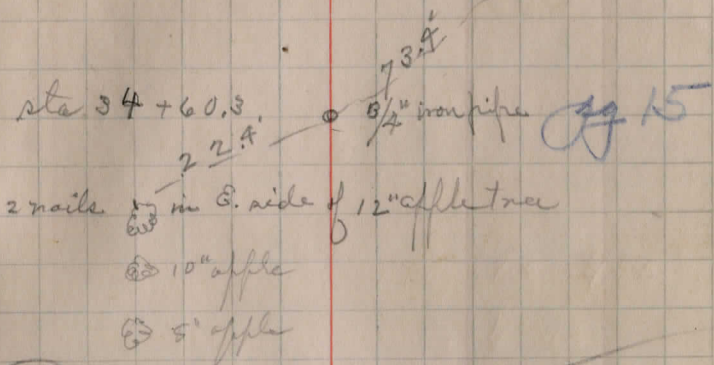 73.4'
sta 34 + 60.3 3/4" iron pipe pg 15
22.4'
2 nails in E. side of 12" apple tree
10" apple
5" apple